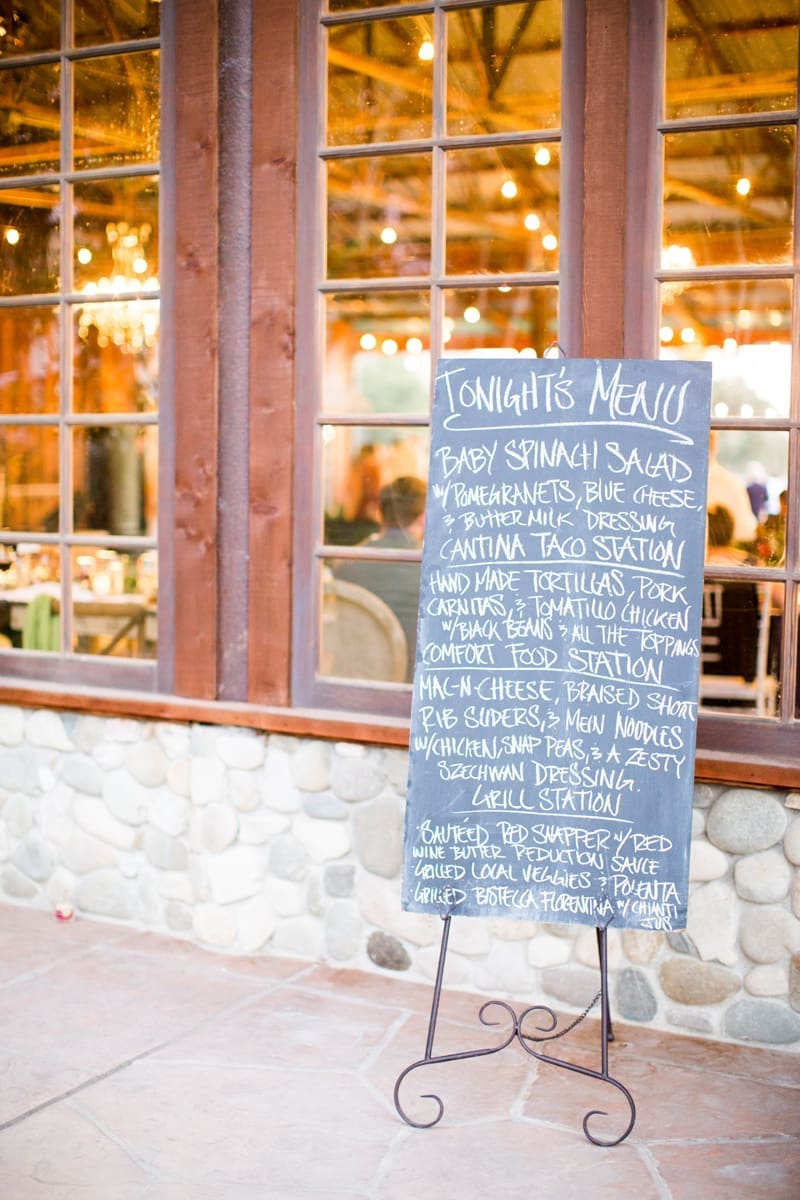 TONIGHT'S MENU
BABY SPINACH SALAD
W/ POMEGRANETS, BLUE CHEESE,
& BUTTERMILK DRESSING
CANTINA TACO STATION
HAND MADE TORTILLAS, PORK
CARNITAS, & TOMATILLO CHICKEN
W/ BLACK BEANS & ALL THE TOPPINGS
COMFORT FOOD STATION
MAC-N-CHEESE, BRAISED SHORT
RIB SLIDERS, & MEIN NOODLES
W/ CHICKEN, SNAP PEAS, & A ZESTY
SZECHWAN DRESSING.
GRILL STATION
·SAUTÉED RED SNAPPER W/ RED
WINE BUTTER REDUCTION SAUCE
·GRILLED LOCAL VEGGIES & POLENTA
·GRILLED BISTECCA FLORENTINA W/ CHIANTI
JUS